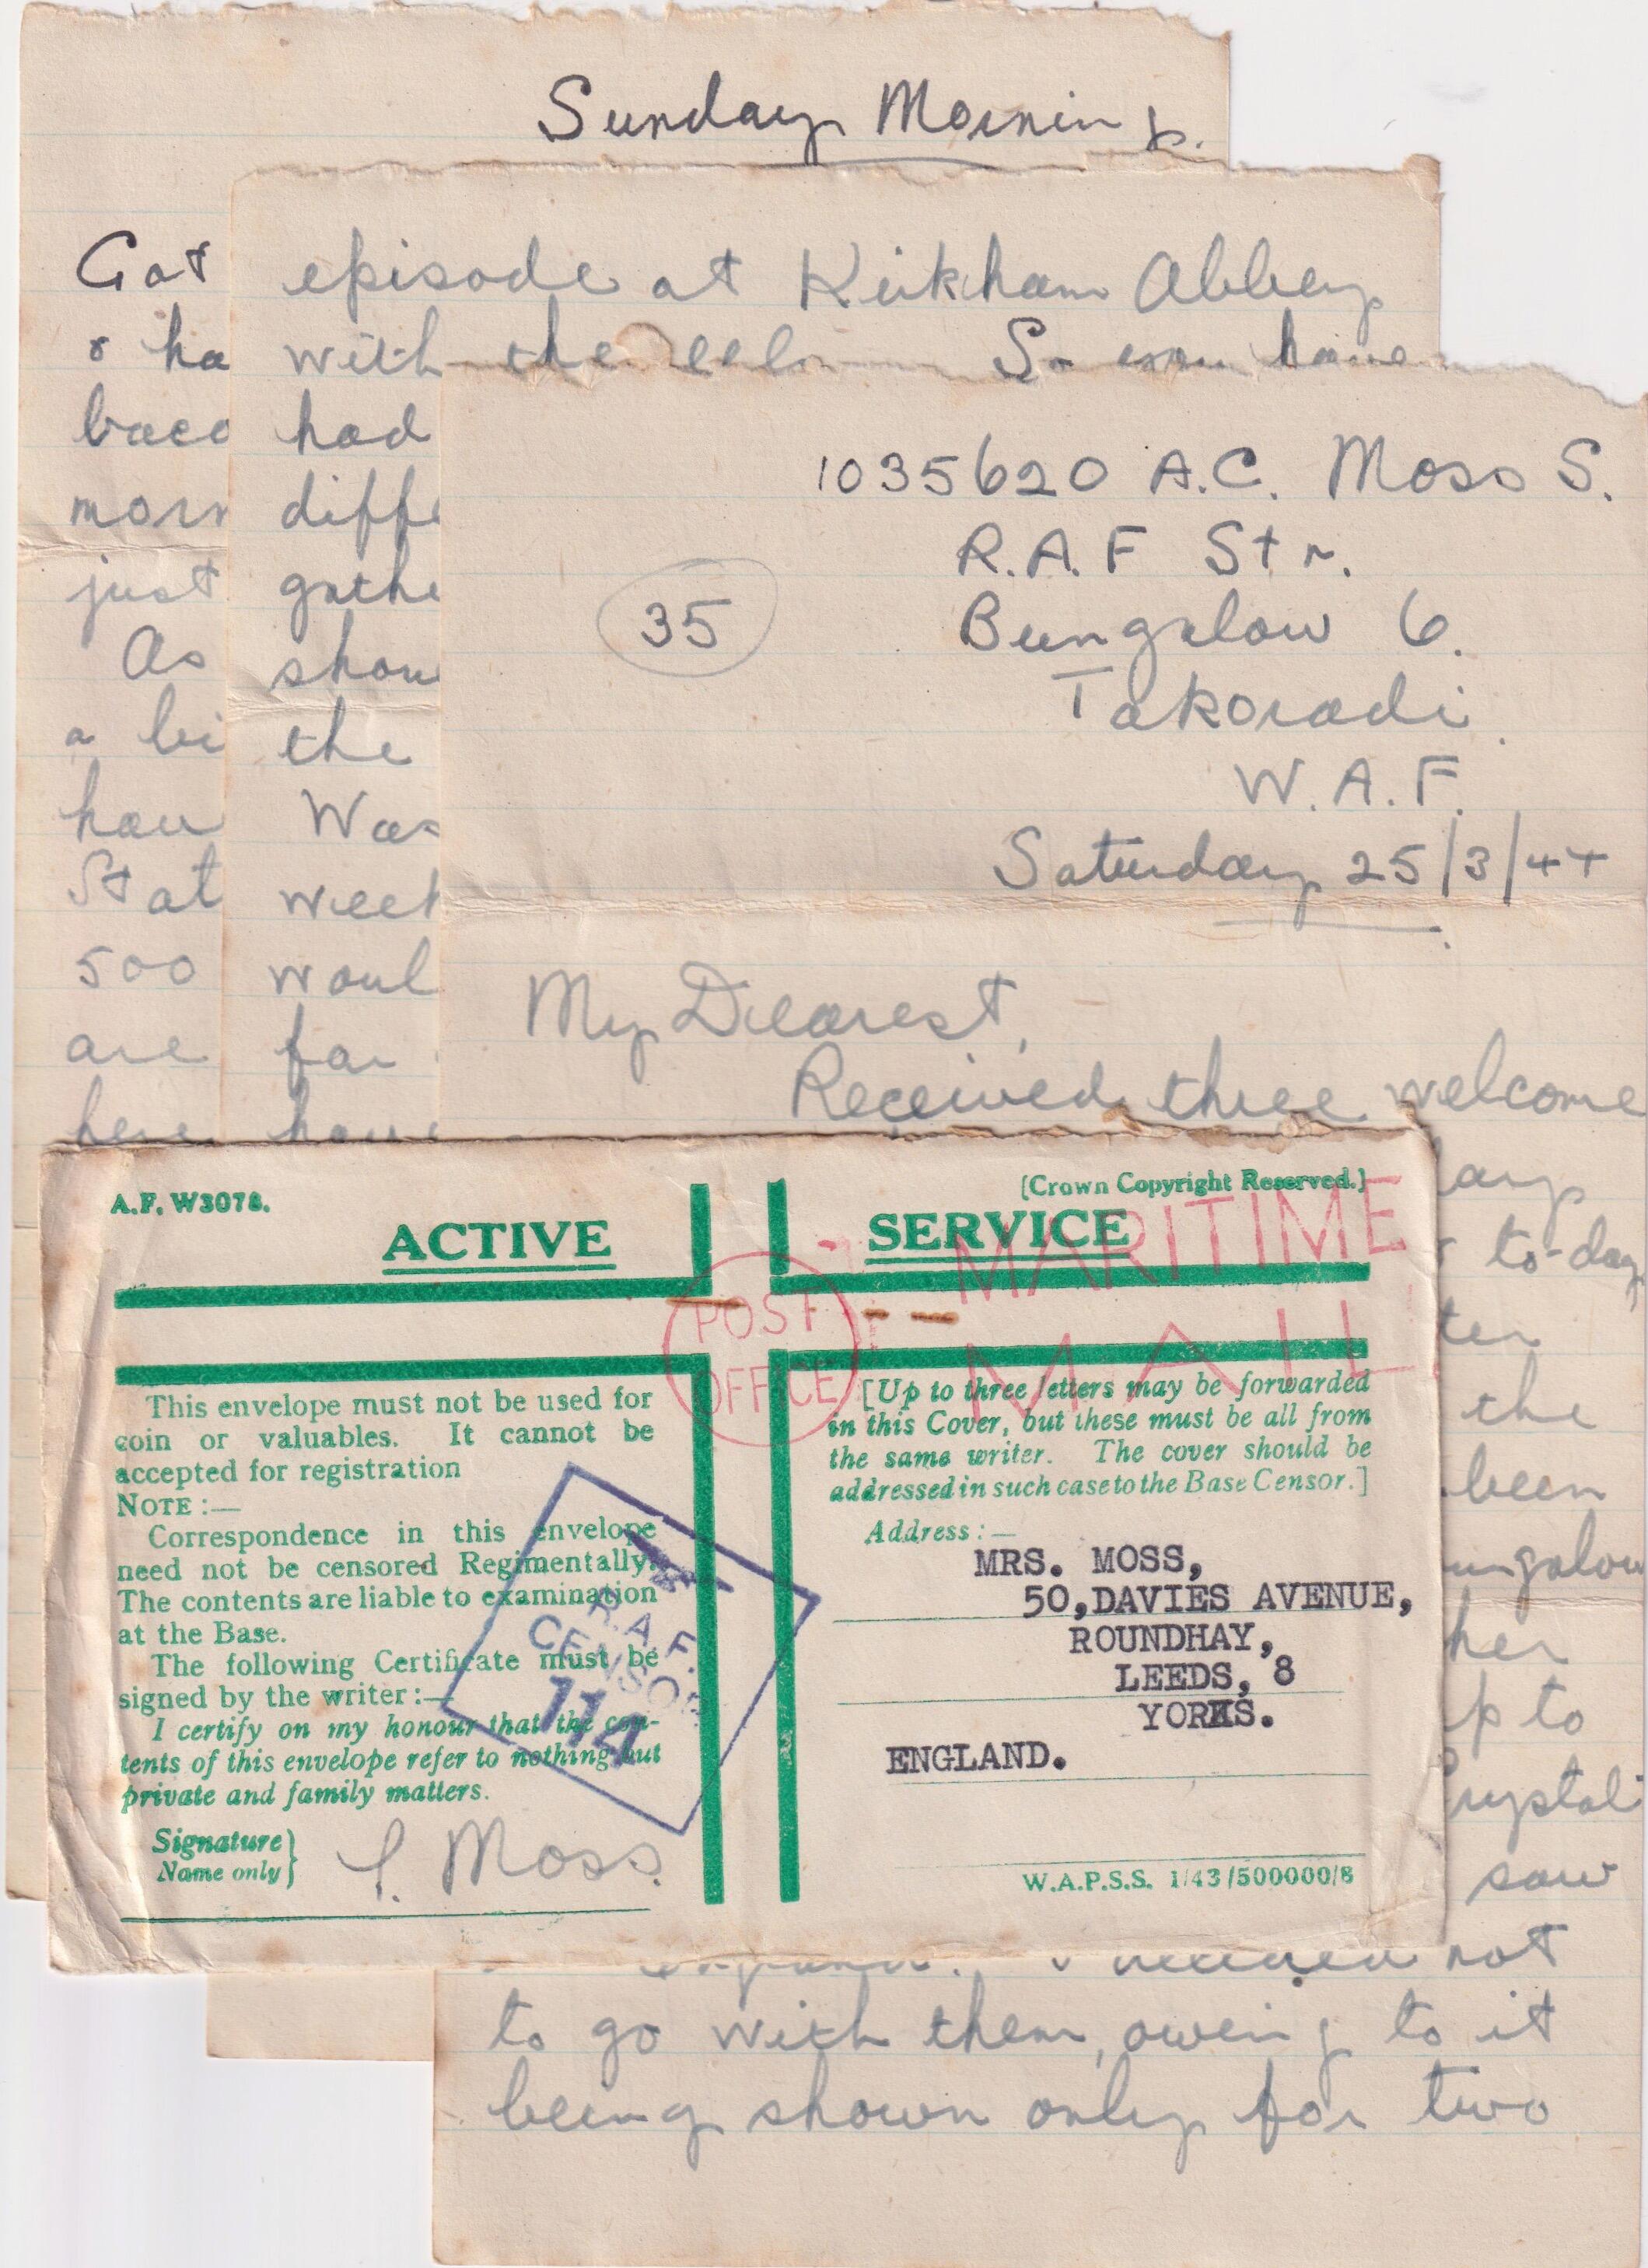 Sunday Morning.
Got
& ha
bacc
morn
just
As
a bi
hau
Stat
500
are
here
episode at Kirkham Abbey
with the eels So you have
had
diffe
gathe
show
the
Was
week
woul
far
have
1035620 A.C. Moss S.
R.A.F Stn.
35
Bungalow 6.
Takoradi.
W.A.F.
Saturday 25/3/44
My Dearest,
Received three welcome
to-day
ter
the
been
ungalow
her
p to
rystal
saw
not
to go with them, owing to it
being shown only for two
A.F. W3078.
(Crown Copyright Reserved.)
ACTIVE SERVICE
MARITIME
MAIL
POST
OFFICE
This envelope must not be used for
coin or valuables. It cannot be
accepted for registration
NOTE :—
Correspondence in this envelope
need not be censored Regimentally.
The contents are liable to examination
at the Base.
The following Certificate must be
signed by the writer :—
I certify on my honour that the con-
tents of this envelope refer to nothing but
private and family matters.
Signature
Name only
S. Moss.
R.A.F.
CENSOR
114
[Up to three letters may be forwarded
in this Cover, but these must be all from
the same writer. The cover should be
addressed in such case to the Base Censor.]
Address :—
MRS. MOSS,
50,DAVIES AVENUE,
ROUNDHAY,
LEEDS, 8
YORKS.
ENGLAND.
W.A.P.S.S. 1/43/500000/8